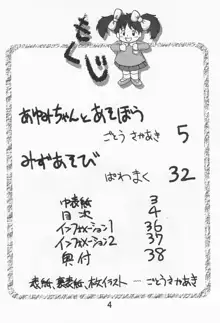 もくじ
あゆみちゃんとあそぼう
ごとうさかあき 5
みずあそび
ぱわまく 32
中表紙 3
目次 4
インフォメーション1 36
インフォメーション2 37
奥付 38
表紙、裏表紙、カットイラスト ― ごとうさかあき
4